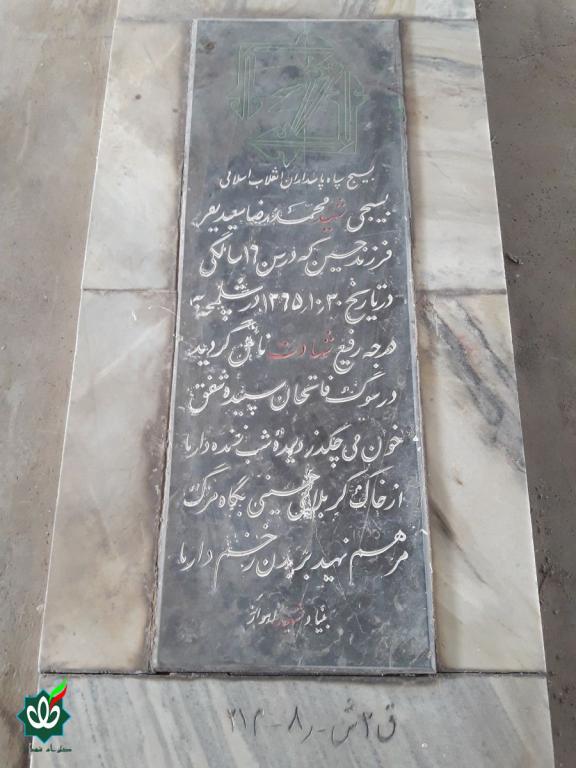 بسیج سپاه پاسداران انقلاب اسلامی
بسیجی شهید محمدرضا سعیدیفر
فرزند حسین که در سن ۱۹ سالگی
در تاریخ ۱۳۶۵،۱۰،۳۰ در شلمچه به
درجه رفیع شهادت نائل گردید
در سوگ فاتحان سپیده شفق
خون می چکد ز دیدۀ شب زنده دار ما
از خاک کربلای حسینی بگاه مرگ
مرهم نهید بر بدن زخم دار ما
بنیاد شهید اهواز
ق ۲ ش - ر ۸ - م ۳۱